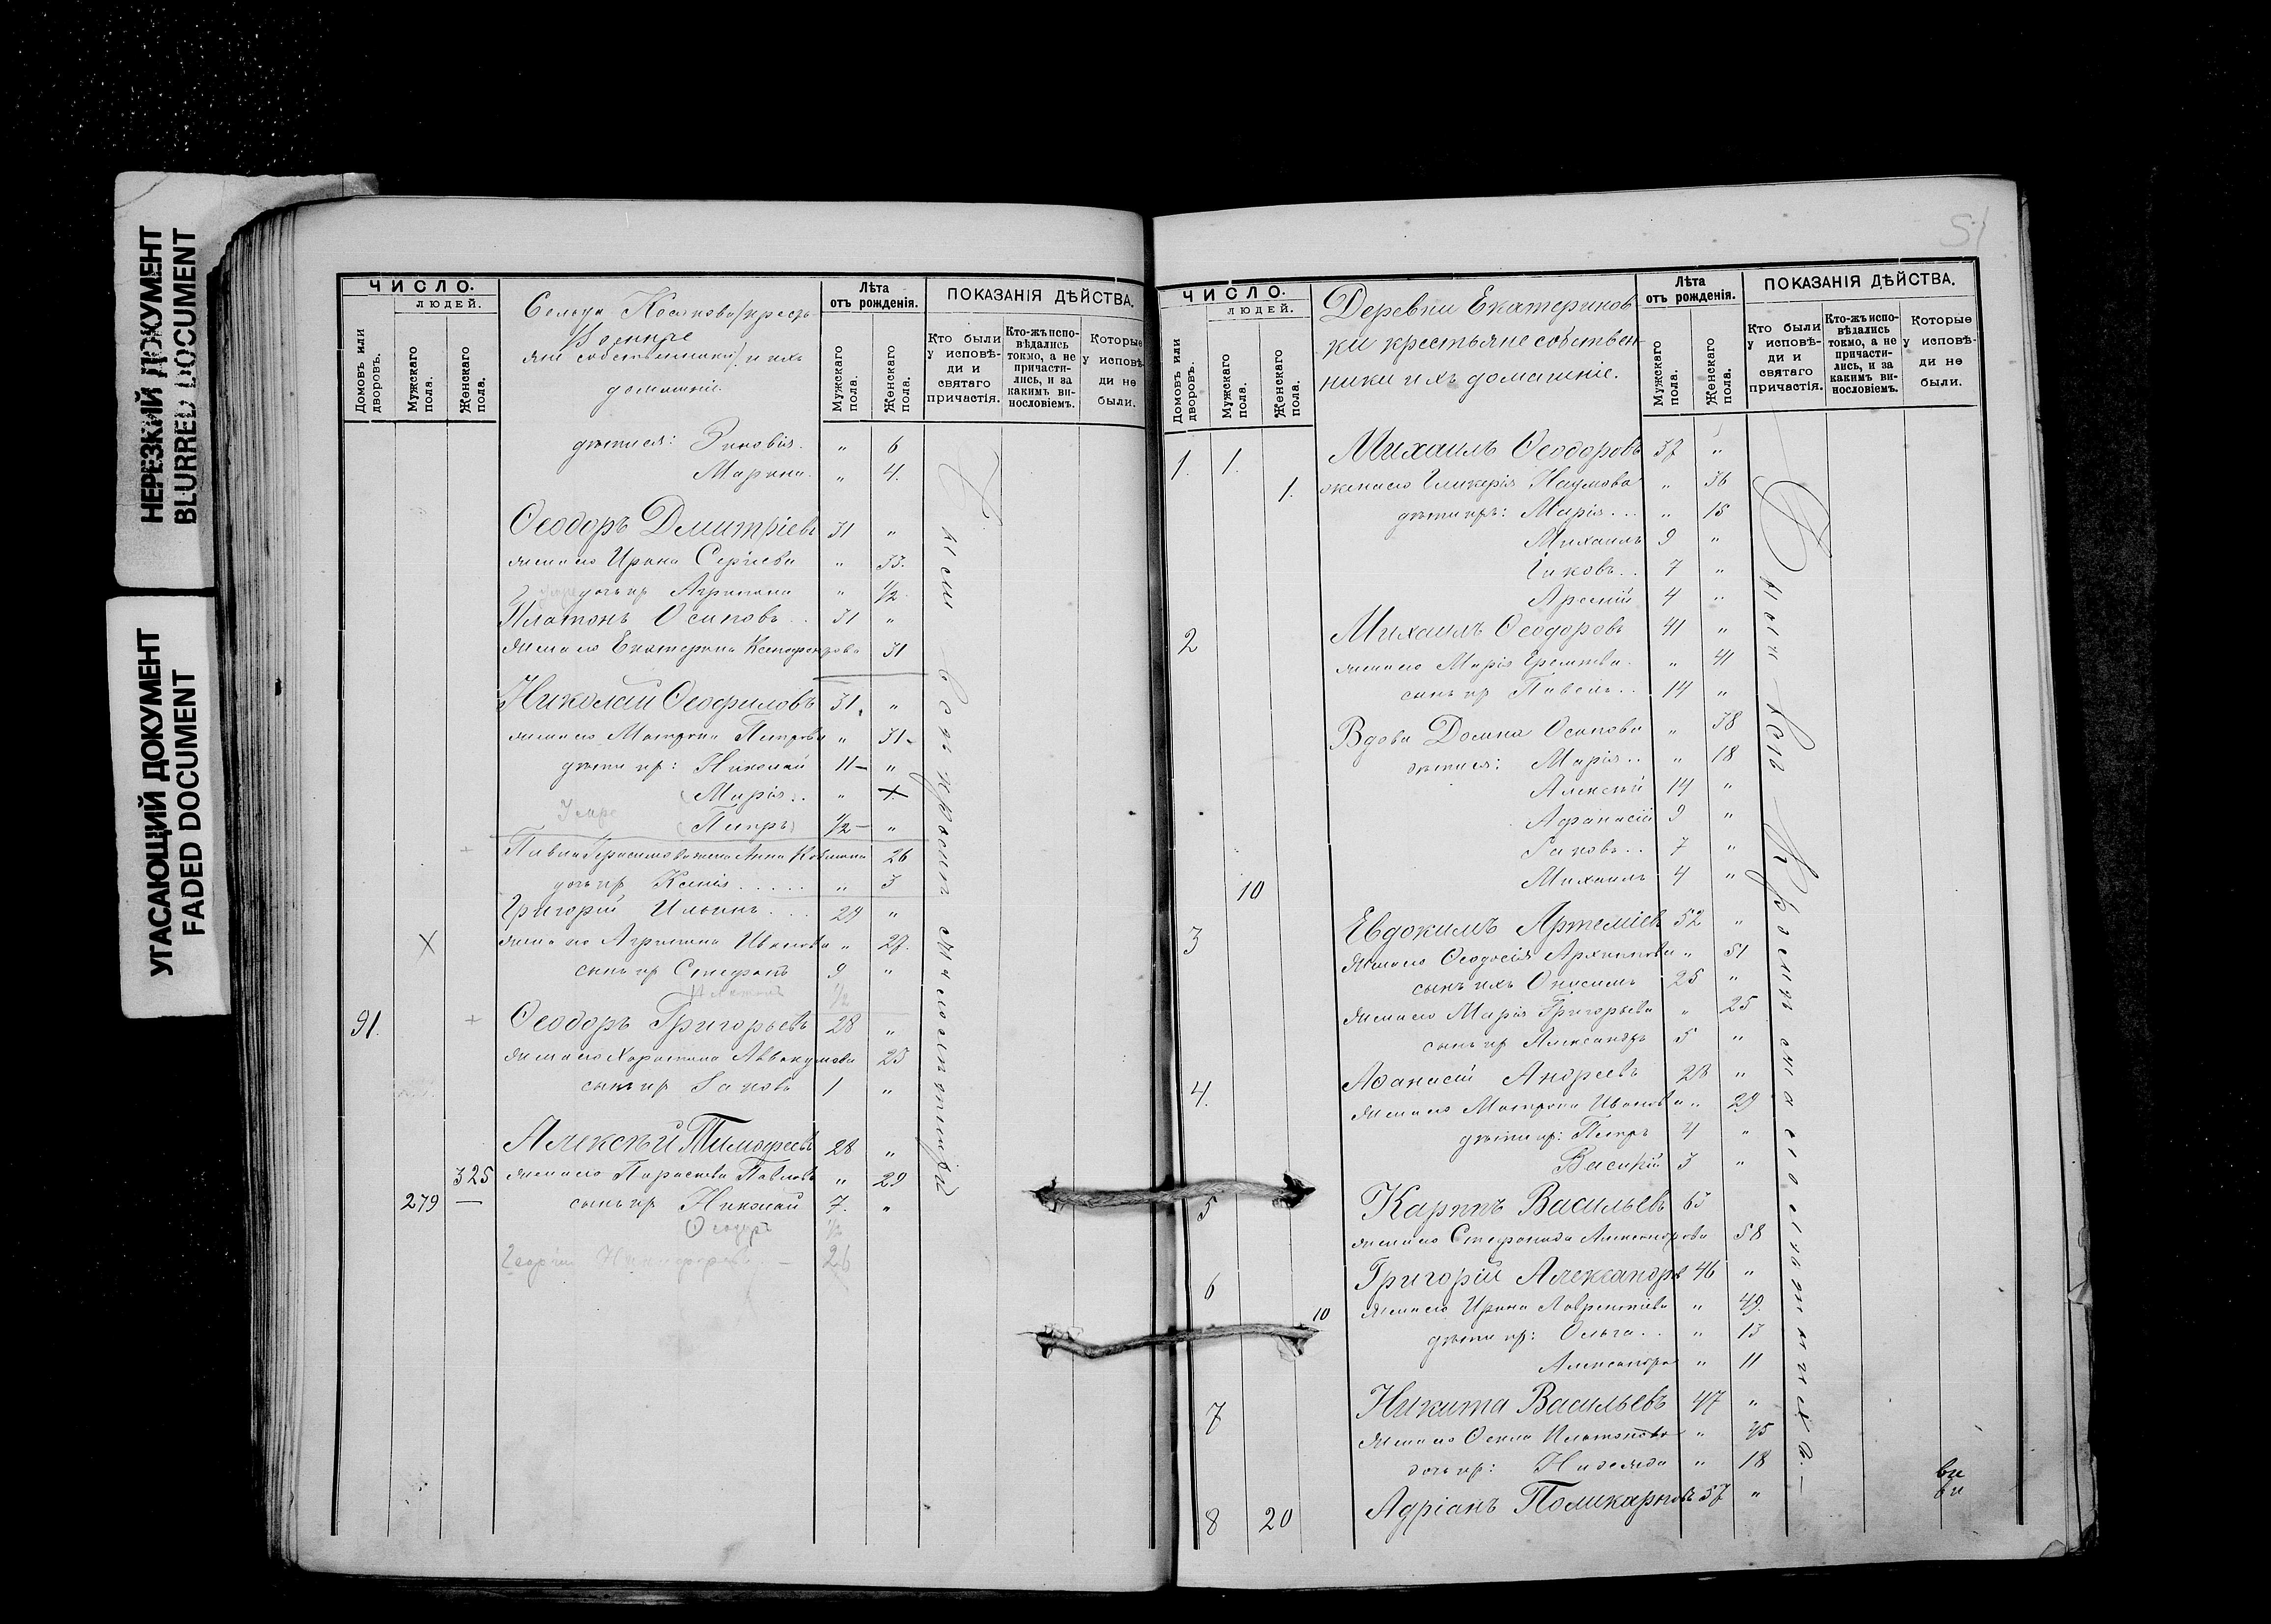 НЕРЕЗКИЙ ДОКУМЕНТ
BLURRED DOCUMENT
УГАСАЮЩИЙ ДОКУМЕНТ
FADED DOCUMENT
ЧИСЛО.
ЛЮДЕЙ.
Домовъ или дворовъ.
Мужскаго пола.
Женскаго пола.
домашніе.
Лѣта отъ рожденія.
Мужскаго пола.
Женскаго пола.
ПОКАЗАНІЯ ДѢЙСТВА.
Кто были у исповѣди и святаго причастія.
Кто-жъ исповѣдались токмо, а не причастились, и за какимъ винословіемъ.
Которые у исповѣди не были.
Зиновія. " 6
Марина. " 4.
Ѳеодоръ Дмитріевъ 31 "
Ирина Сергіева " 33.
дочь их Агрипина " 1/2
Платонъ Осиповъ .. 31 "
жена его Екатерина 31
Николай Ѳеофиловъ 31. "
жена его Матрона Петрова " 31
дѣти их: Николай 11 "
Марія .. "
Умре Петръ 1/2 "
26
дочь их Ксенія ..... " 3
Григорій Ильинъ ... 29 "
жена его Агрипина Иванова "
сынъ их Стефанъ 9 "
Платонъ 1/2
91. Ѳеодоръ Григорьевъ 28 "
жена его Аввакумова
сынъ их Іаковъ 1 "
Алексѣй Тимофеевъ 28 "
325 жена его Параскева Павлова " 29
279 сынъ их Николай 7. "
Ѳеодоръ 1/2
26
51
ЧИСЛО.
ЛЮДЕЙ.
Домовъ или дворовъ.
Мужскаго пола.
Женскаго пола.
Деревни Екатеринов
ки крестьяне собствен
ники и ихъ домашніе.
Лѣта отъ рожденія.
Мужскаго пола.
Женскаго пола.
ПОКАЗАНІЯ ДѢЙСТВА.
Кто были у исповѣди и святаго причастія.
Кто-жъ исповѣдались токмо, а не причастились, и за какимъ винословіемъ.
Которые у исповѣди не были.
1. 1. Михаилъ Ѳеодоровъ 37 "
1. жена его Гликерія Наумова " 36
дѣти их: Марія ... " 15
Михаилъ 9 "
Іаковъ .. 7 "
Арсеній 4 "
2 Михаилъ Ѳеодоровъ 41 "
жена его Марія " 41
сынъ их Павелъ .. 14 "
Вдова Домна Осипова " 38
Марія .. " 18
Алексѣй 14 "
Афанасій 9 "
Іаковъ .. 7 "
10 Михаилъ 4 "
3 Евдокимъ Артеміевъ 52 "
жена его Ѳеодосія Архипова " 51
сынъ ихъ Онисимъ 25 "
жена его Марія Григорьева " 25
сынъ их Александръ 5 "
4. Аѳанасій Андреевъ 28 "
жена его Матрона Иванова " 29
дѣти их: Петръ 4 "
Василій 3 "
5 Карпъ Васильевъ 63
жена его Стефанида Александрова 58
6 Григорій Александровъ 46 "
10 жена его Ирина Лаврентіева " 49.
дѣти их: Ольга .. " 13
Александра " 11
7 Никита Васильевъ 47 "
жена его Ѳекла Платонова " 45
дочь их: Надежда " 18
8 20 Адріанъ Поликарповъ 57 "